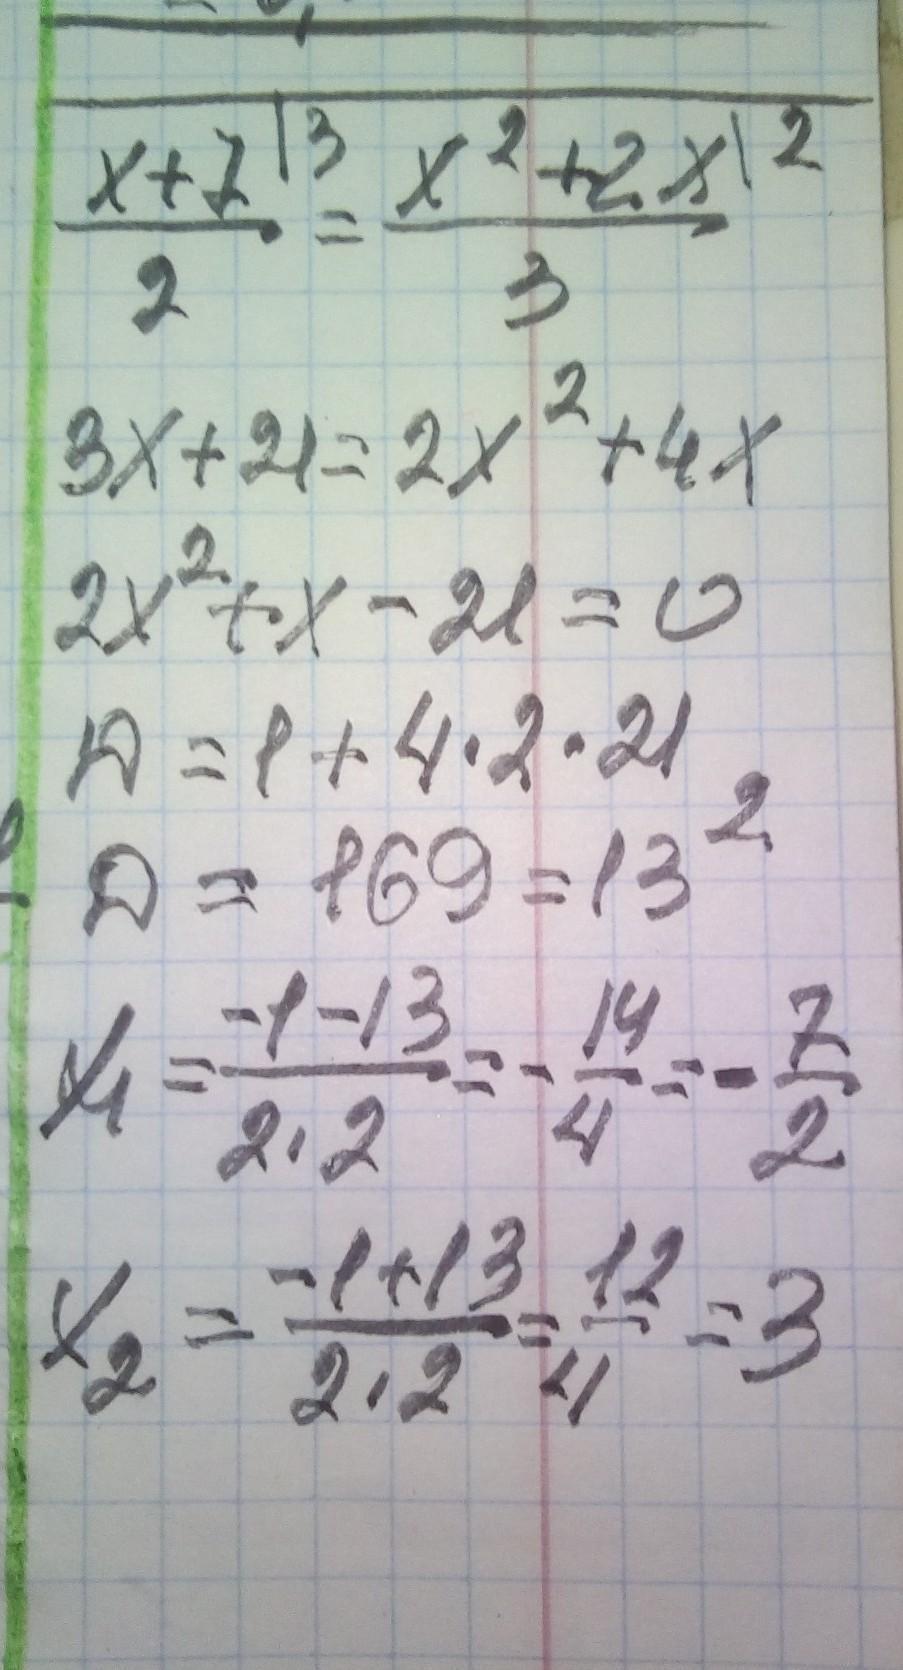 x+7|3 / 2 = x²+2x|2 / 3
3x+21=2x²+4x
2x²+x-21=0
D=1+4·2·21
D=169=13²
x₁=(-1-13)/(2·2)=-14/4=-7/2
x₂=(-1+13)/(2·2)=12/4=3